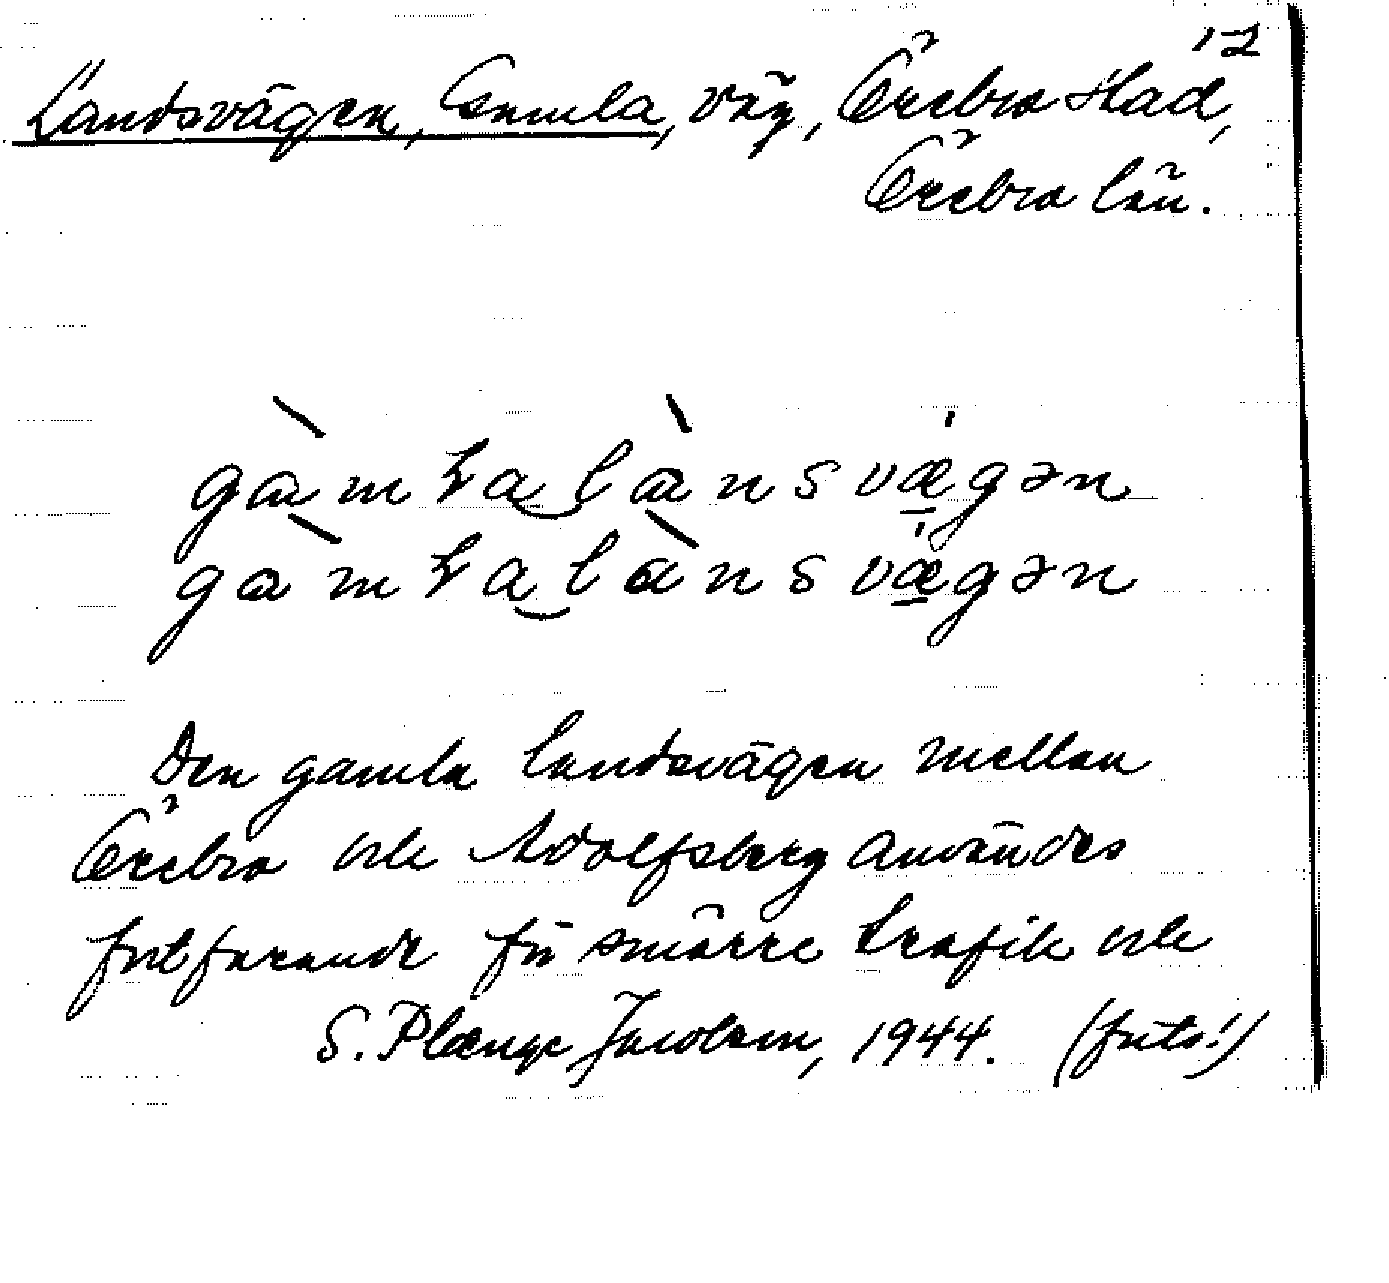 12
Landsvägen, Gamla, väg, Örebro stad,
Örebro län.
gàmƚa‿lànsvæ̀gən
gàmƚa‿lànsvæ̀gən
Den gamla landsvägen mellan
Örebro och Adolfsberg användes
fortfarande för smärre trafik och
S. Plænge Jacobson, 1944. (forts.!)